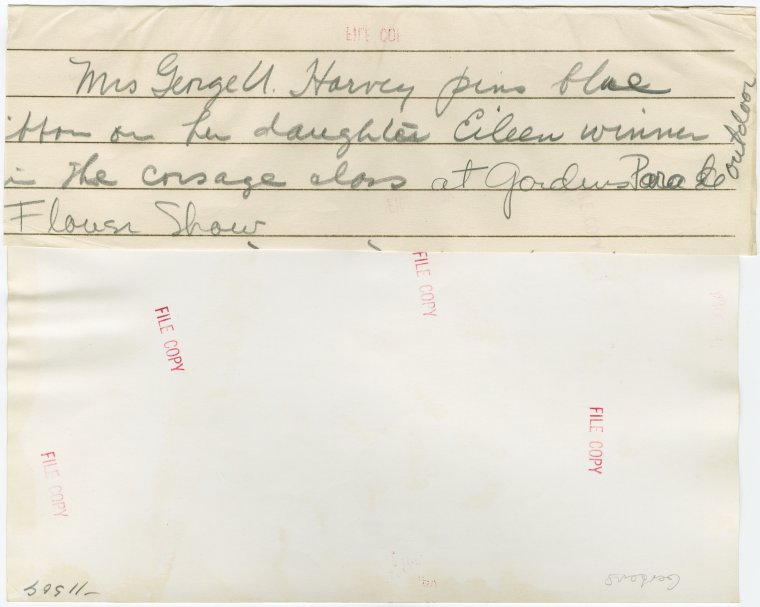 FILE COPY
Mrs George U. Harvey pins blue
ibbon on her daughter Eileen winner
in the corsage class at Gardens Parade outdoor
Flower Show
FILE COPY
FILE COPY
FILE COPY
FILE COPY
Gardens